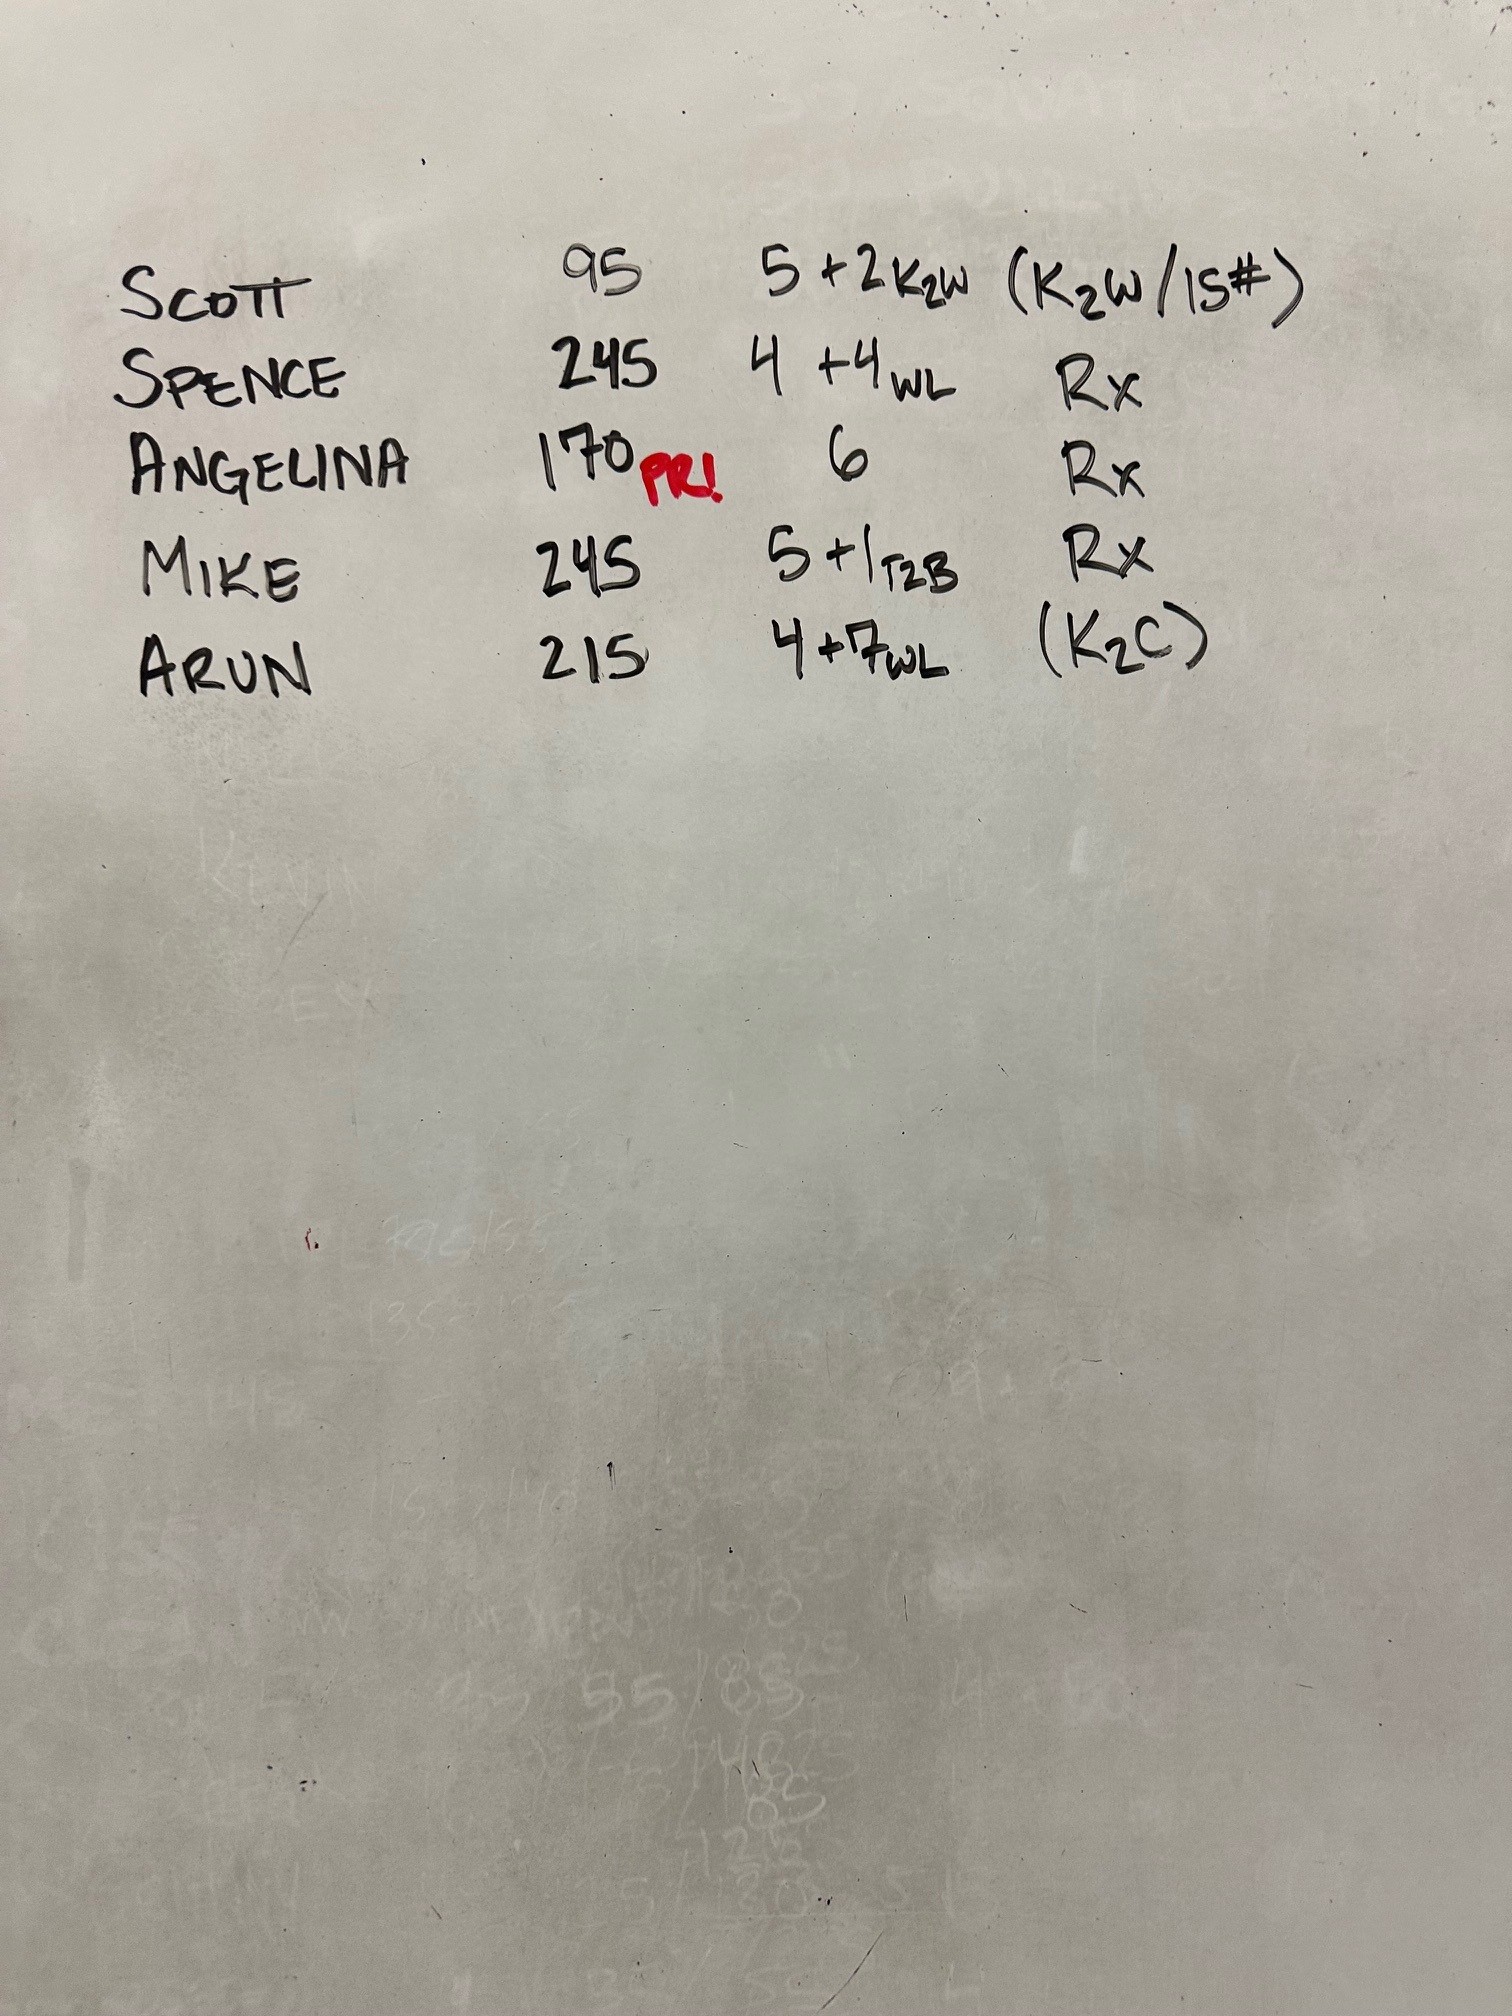 SCOTT 95 5+2K2W (K2W/15#)
SPENCE 245 4+4WL Rx
ANGELINA 170 PR! 6 Rx
MIKE 245 5+1T2B Rx
ARUN 215 4+7WL (K2C)